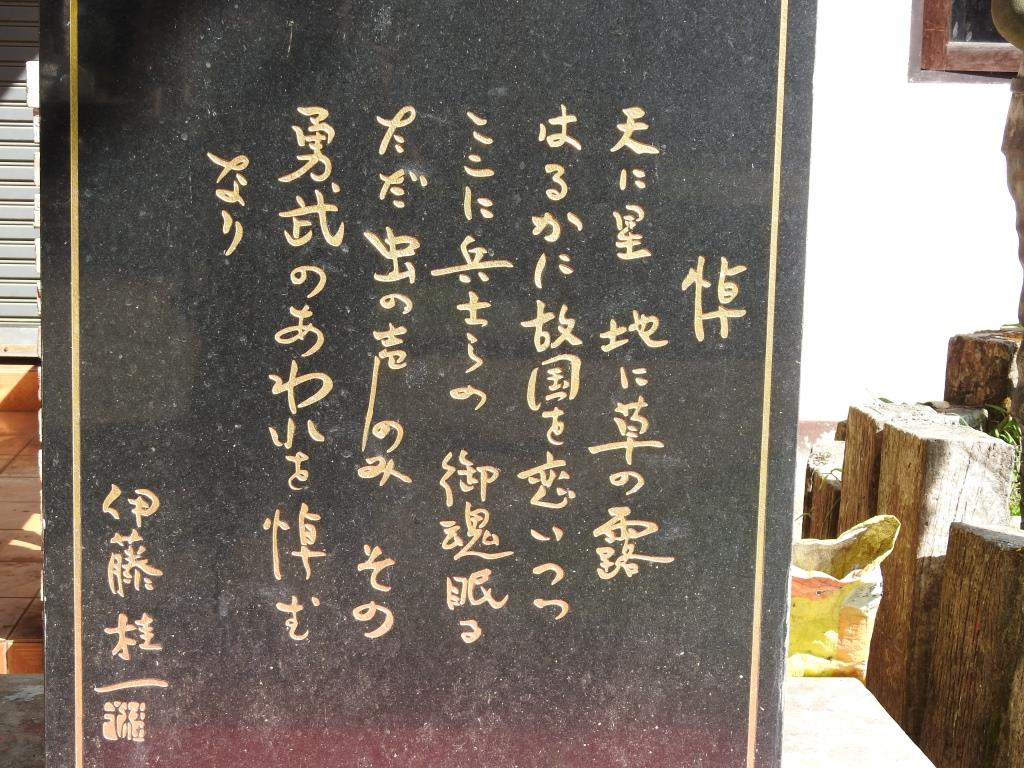 悼
天に星 地に草の露
はるかに故国を恋いつつ
ここに兵士らの 御魂眠る
ただ 虫の声のみ その
勇武のあわれを悼む
なり
伊藤桂一